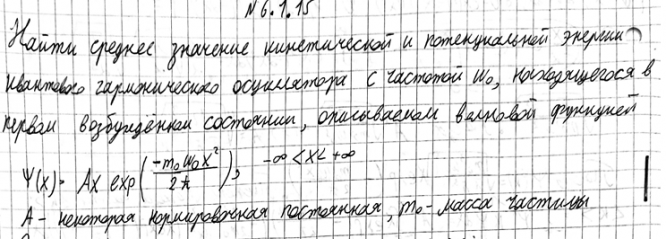 №6.1.15
Найти среднее значение кинетической и потенциальной энергии
квантового гармонического осциллятора с частотой ω₀, находящегося в
первом возбуждённом состоянии, описываемом волновой функцией
Ψ(x) = Ax exp(-m₀ω₀x²/2ħ), -∞ < x < +∞
A - некоторая нормировочная постоянная, m₀ - масса частицы